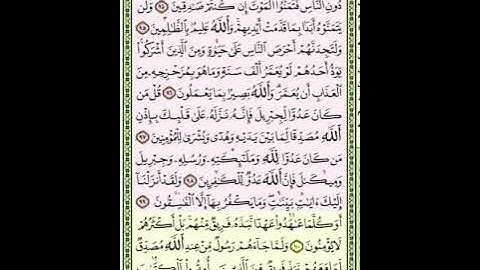 دُونِ النَّاسِ فَتَمَنَّوُا الْمَوْتَ إِن كُنتُمْ صَٰدِقِينَ ٩٤ وَلَن
يَتَمَنَّوْهُ أَبَدًۢا بِمَا قَدَّمَتْ أَيْدِيهِمْ وَاللَّهُ عَلِيمٌۢ بِالظَّٰلِمِينَ ٩٥
وَلَتَجِدَنَّهُمْ أَحْرَصَ النَّاسِ عَلَىٰ حَيَوٰةٍ وَمِنَ الَّذِينَ أَشْرَكُوا۟
يَوَدُّ أَحَدُهُمْ لَوْ يُعَمَّرُ أَلْفَ سَنَةٍ وَمَا هُوَ بِمُزَحْزِحِهِۦ مِنَ
الْعَذَابِ أَن يُعَمَّرَ وَاللَّهُ بَصِيرٌۢ بِمَا يَعْمَلُونَ ٩٦ قُلْ مَن
كَانَ عَدُوًّا لِّجِبْرِيلَ فَإِنَّهُۥ نَزَّلَهُۥ عَلَىٰ قَلْبِكَ بِإِذْنِ
اللَّهِ مُصَدِّقًا لِّمَا بَيْنَ يَدَيْهِ وَهُدًى وَبُشْرَىٰ لِلْمُؤْمِنِينَ ٩٧
مَن كَانَ عَدُوًّا لِّلَّهِ وَمَلَٰٓئِكَتِهِۦ وَرُسُلِهِۦ وَجِبْرِيلَ
وَمِيكَىٰلَ فَإِنَّ اللَّهَ عَدُوٌّ لِّلْكَٰفِرِينَ ٩٨ وَلَقَدْ أَنزَلْنَآ
إِلَيْكَ ءَايَٰتٍۭ بَيِّنَٰتٍ وَمَا يَكْفُرُ بِهَآ إِلَّا الْفَٰسِقُونَ ٩٩
أَوَكُلَّمَا عَٰهَدُوا۟ عَهْدًا نَّبَذَهُۥ فَرِيقٌ مِّنْهُم بَلْ أَكْثَرُهُمْ
لَا يُؤْمِنُونَ ١٠٠ وَلَمَّا جَآءَهُمْ رَسُولٌ مِّنْ عِندِ اللَّهِ مُصَدِّقٌ
لِّمَا مَعَهُمْ نَبَذَ فَرِيقٌ مِّنَ الَّذِينَ أُوتُوا۟ الْكِتَٰبَ